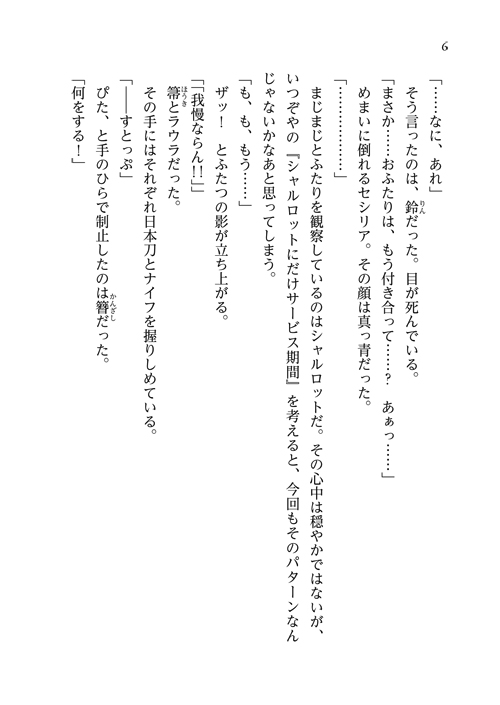 6
「……なに、あれ」
そう言ったのは、鈴りんだった。目が死んでいる。
「まさか……おふたりは、もう付き合って……？　あぁっ……」
めまいに倒れるセシリア。その顔は真っ青だった。
「………………」
まじまじとふたりを観察しているのはシャルロットだ。その心中は穏やかではないが、
いつぞやの『シャルロットにだけサービス期間』を考えると、今回もそのパターンなん
じゃないかなあと思ってしまう。
「も、も、もう……」
ザッ！　とふたつの影が立ち上がる。
「「我慢ならん！！」」
箒ほうきとラウラだった。
その手にはそれぞれ日本刀とナイフを握りしめている。
「――すとっぷ」
ぴた、と手のひらで制止したのは簪かんざしだった。
「何をする！」